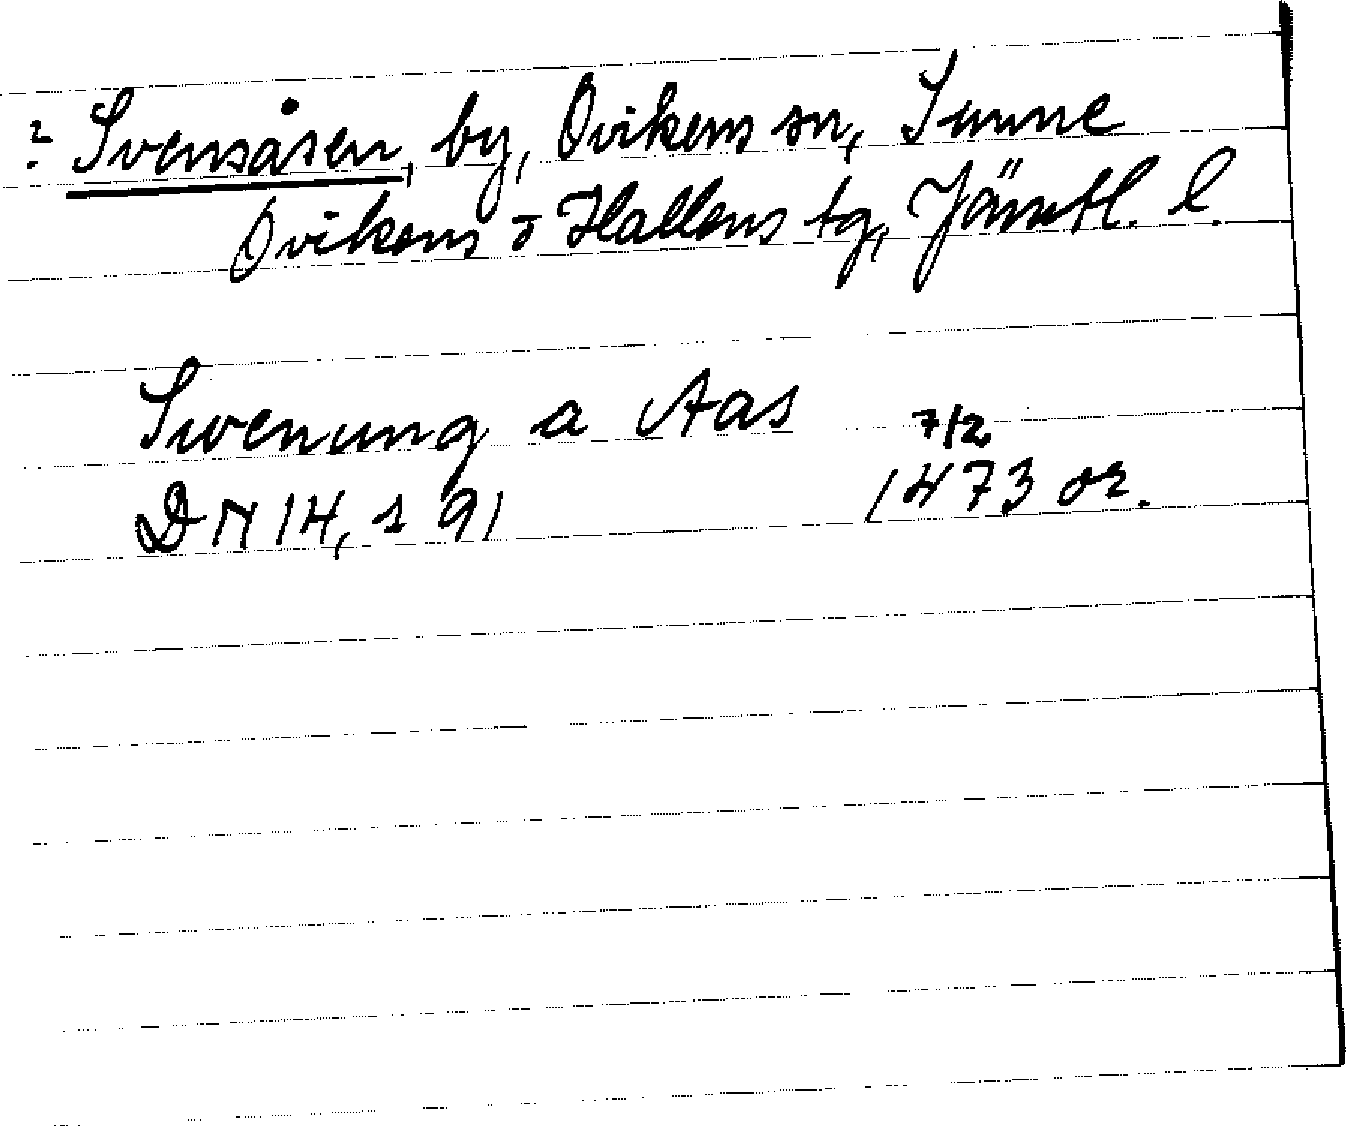 ? Svensåsen, by, Ovikens sn, Sunne
Ovikens o Hallens tg, Jämtl. l.
Swenung a Aas 7/2
DN 14, s 91 1473 or.